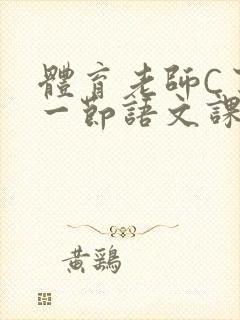 體育老師C了
一節語文課
黃鷄